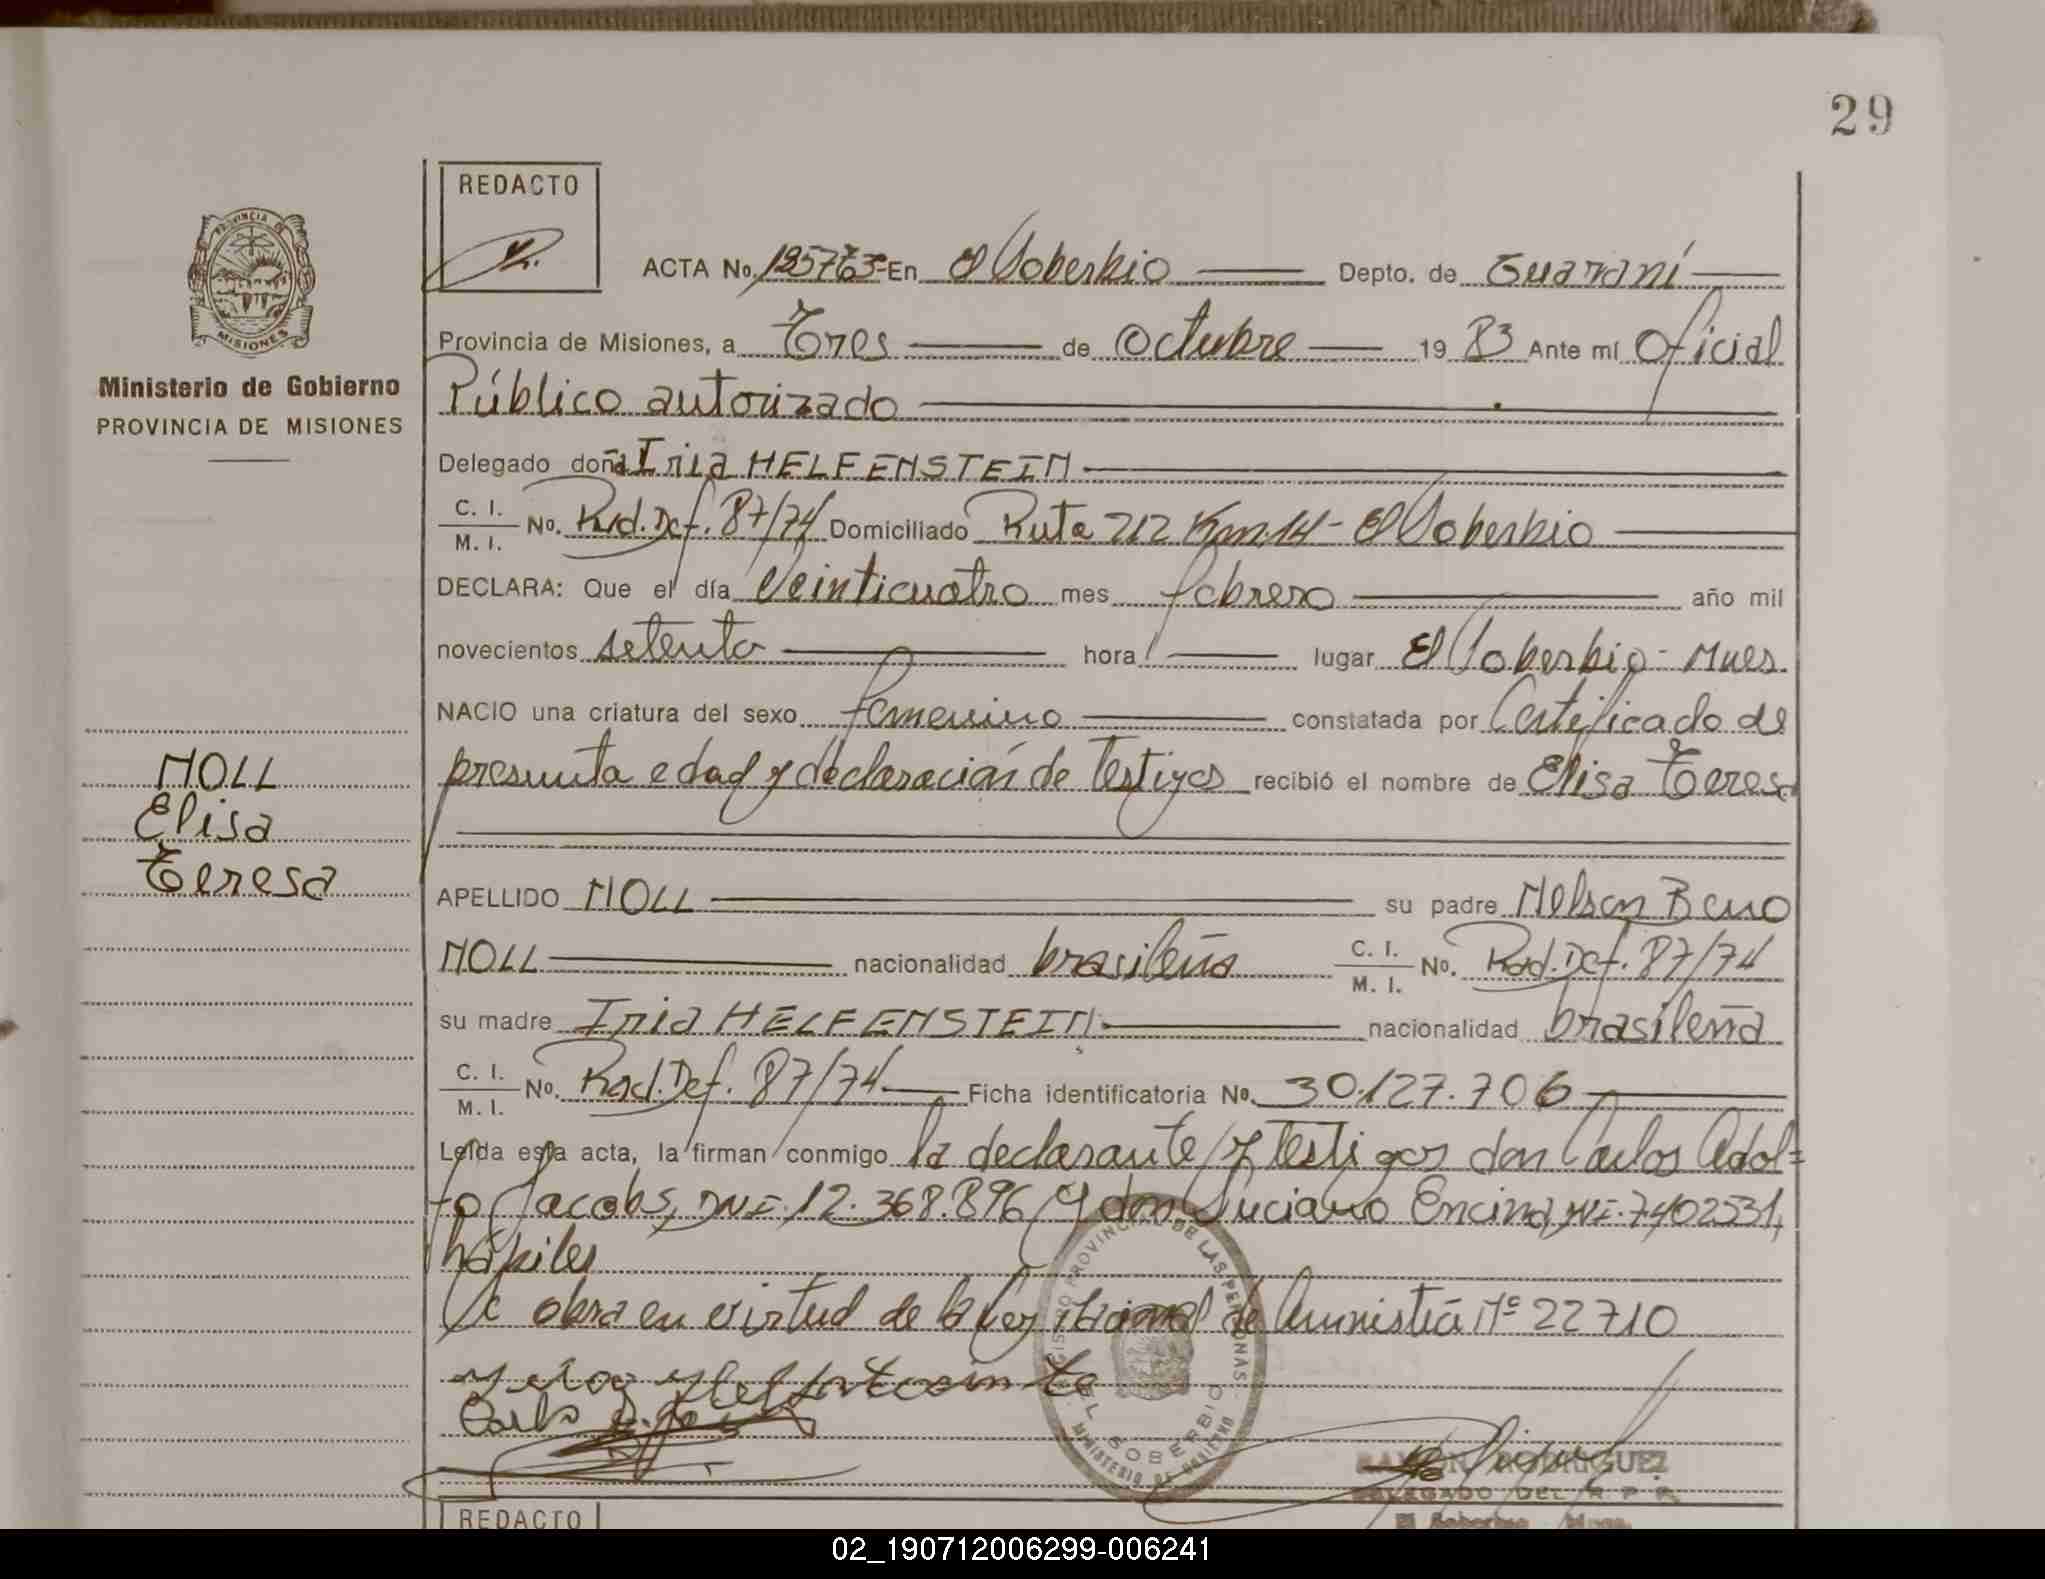 29
REDACTO
PROVINCIA DE
MISIONES
Ministerio de Gobierno
PROVINCIA DE MISIONES
ACTA No. 125763- En El Soberbio Depto. de Guaraní
Provincia de Misiones, a Tres de Octubre 19 83 Ante mí Oficial
Público autorizado
Delegado doña Iria HELFENSTEIN
C. I.
M. I. No. Rad. Def. 87/74 Domiciliado Ruta 212 Km. 14 - El Soberbio
DECLARA: Que el día Veinticuatro mes febrero año mil
novecientos setenta hora lugar El Soberbio - Mnes.
NACIO una criatura del sexo femenino constatada por Certificado de
presunta edad y declaración de testigos recibió el nombre de Elisa Teresa
NOLL
Elisa
Teresa
APELLIDO NOLL su padre Nelson Beno
NOLL nacionalidad brasileña C. I.
M. I. No. Rad. Def. 87/74
su madre Iria HELFENSTEIN nacionalidad brasileña
C. I.
M. I. No. Rad. Def. 87/74 Ficha identificatoria No. 30.127.706
Leída esta acta, la firman conmigo la declarante y testigos don Carlos Adol=
fo Jacobs, DNI. 12.368.896 y don Luciano Encina, 7402531,
hábiles
Se obra en virtud de la Ley Nacional de Amnistía Nº 22710
REGISTRO PROVINCIAL DE LAS PERSONAS
EL SOBERBIO
MINISTERIO DE GOBIERNO
RAMON RODRIGUEZ
DELEGADO DEL R. P. P.
El Soberbio Mnes.
REDACTO
02_190712006299-006241